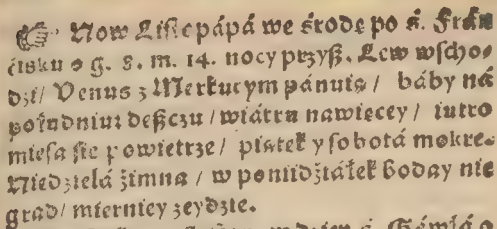 ☞ Now Listepápá we środę po ś. Frán
ćisku o g. 8. m. 14. nocy przyß. Lew wscho⸗
dźi/ Venus z Merkurym pánuią/ báby ná
południu: deßczu/ wiátru nawięcey/ iutro
mięsa się powietrze/ piątek y sobotá mokre.
Niedźielá źimna/ w poniedźiáłek Boday nie
grad/ mierniey zeydźie.